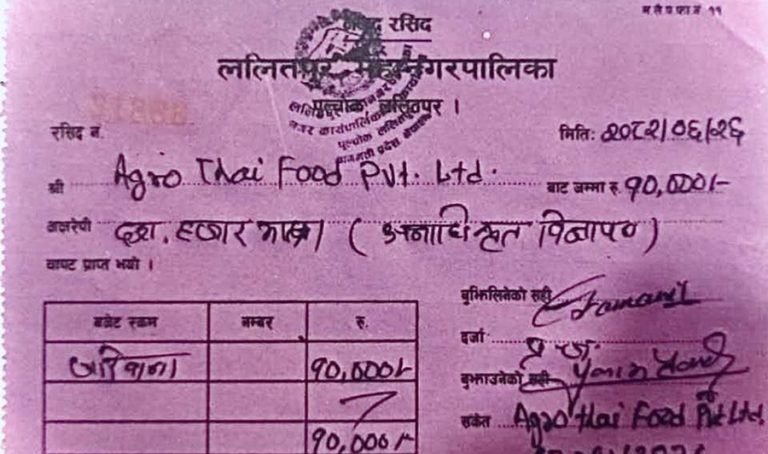 म ले प फा नं ११
नगद रसिद
ललितपुर महानगरपालिका
पुल्चोक, ललितपुर ।
रसिद नं. मिति: २०८२/०६/२६
श्री Agro Thai Food Pvt. Ltd. बाट जम्मा रु. १०,०००/-
अक्षरेपी दश हजार मात्र। (अनाधिकृत विज्ञापन)
वापत प्राप्त भयो ।
बुझिलिनेको सही
बजेट रकम नम्बर रु.
दर्जा प्र.ज.
जरिवाना १०,०००/-
बुझाउनेको सही
संकेत Agro Thai Food Pvt Ltd.
१०,०००/-